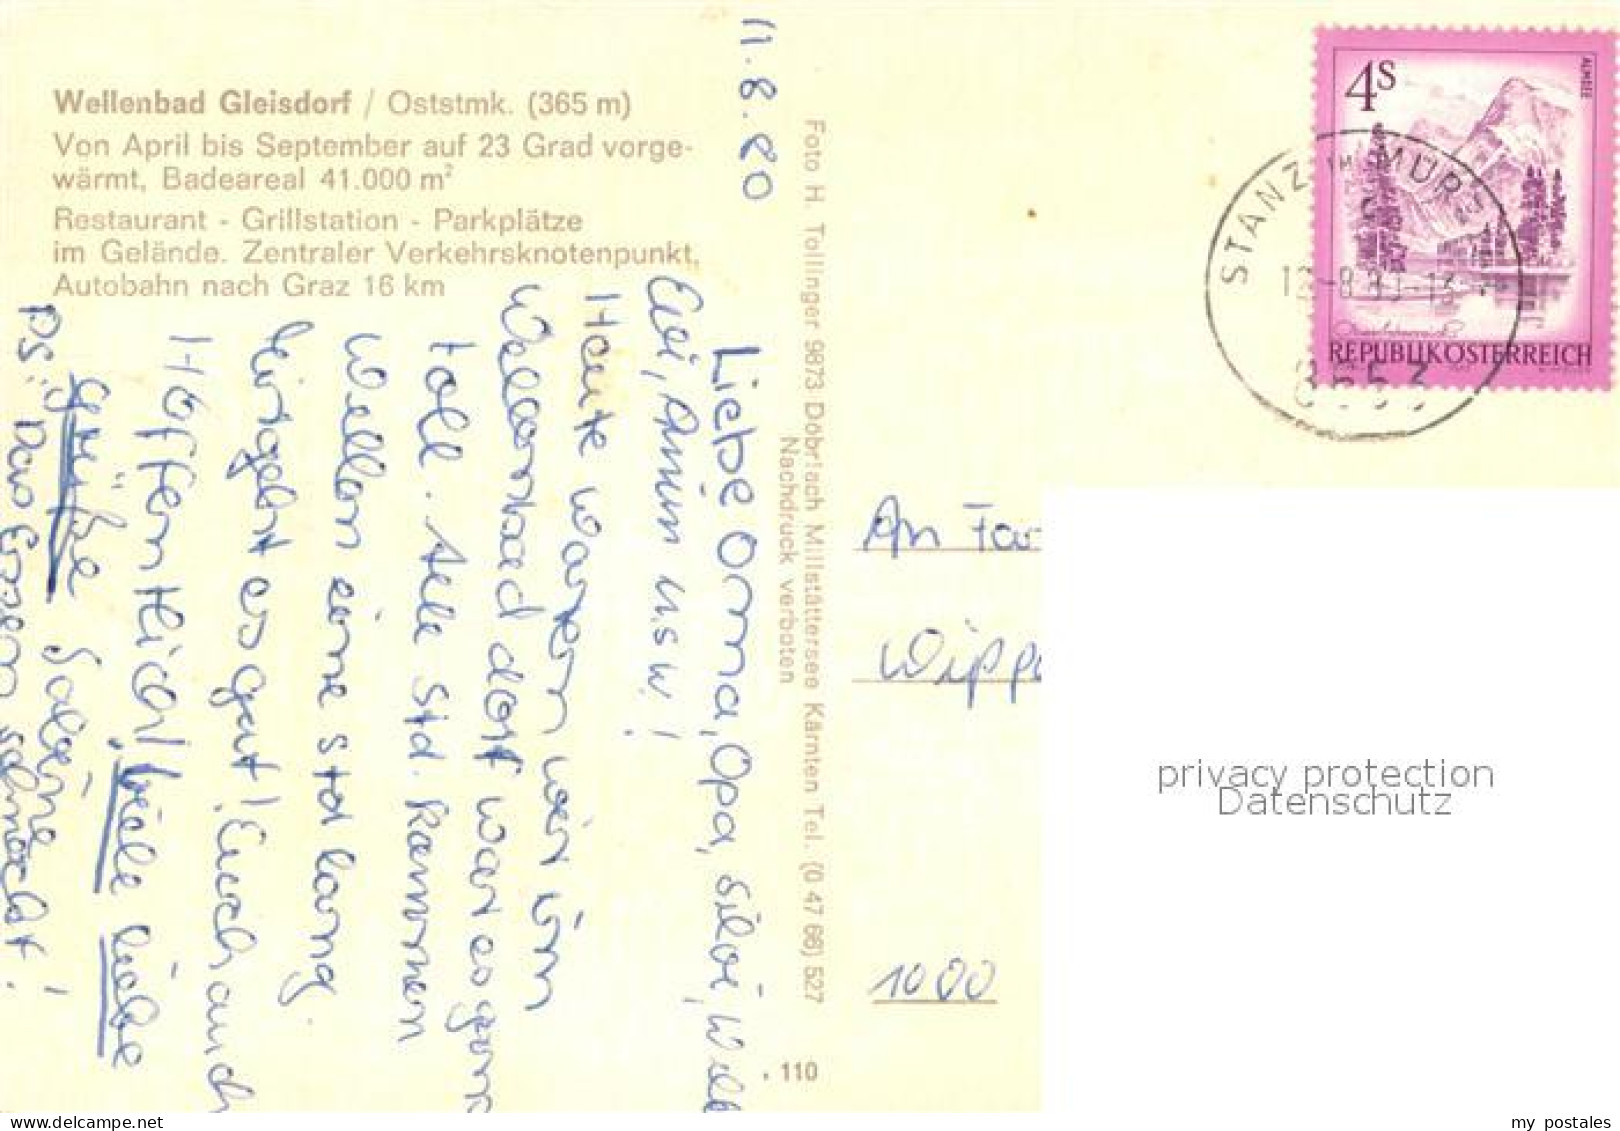 Wellenbad Gleisdorf / Oststmk. (365 m)
Von April bis September auf 23 Grad vorge-
wärmt, Badeareal 41.000 m²
Restaurant - Grillstation - Parkplätze
im Gelände. Zentraler Verkehrsknotenpunkt,
Autobahn nach Graz 16 km
11.8.80
Liebe Omma, Opa, Silvi, Will
Evi, Armin usw!
Heute waren wir im
Wellenbad dort war es ganz
toll. Alle Std. kammen
Wellen eine Std lang.
Mir geht es gut! Euch auch
Hoffentlich! Viele liebe
Grüße Sabine
PS: Das Essen schmeckt!
Foto H. Tollinger 9873 Döbriach Millstättersee Kärnten Tel. (0 47 66) 527
Nachdruck verboten
110
4S
ALMSEE
REPUBLIK ÖSTERREICH
STANZ IM MÜRZ
8653
An Fa
Wipp
1000
privacy protection
Datenschutz
my postales